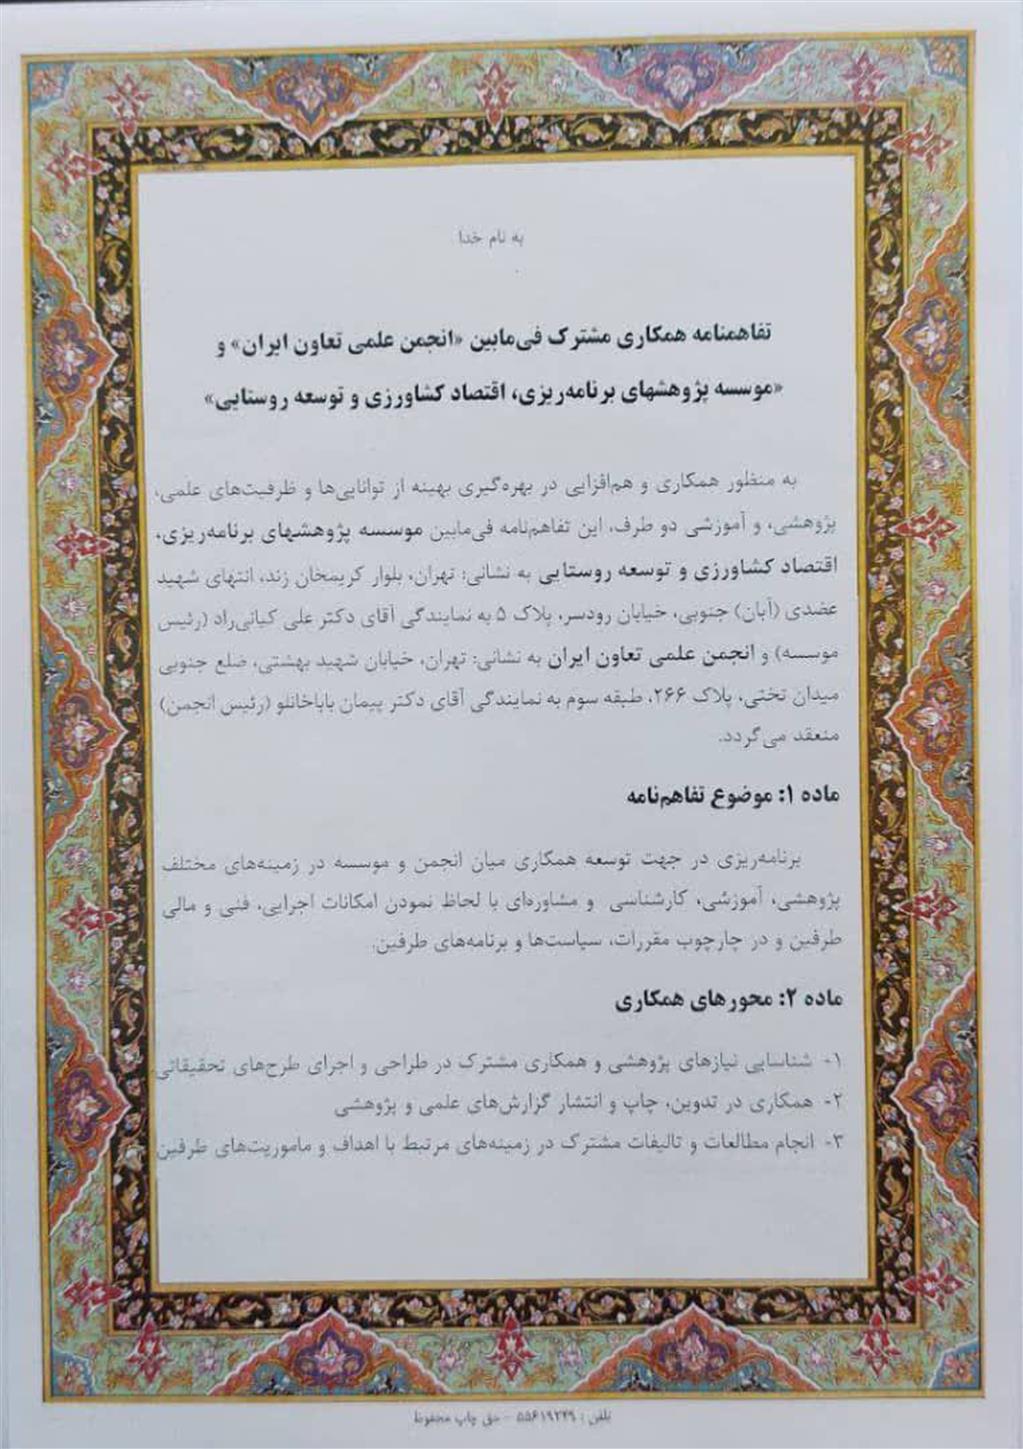 به نام خدا
تفاهمنامه همکاری مشترک فی‌مابین «انجمن علمی تعاون ایران» و
«موسسه پژوهشهای برنامه‌ریزی، اقتصاد کشاورزی و توسعه روستایی»
به منظور همکاری و هم‌افزایی در بهره‌گیری بهینه از توانایی‌ها و ظرفیت‌های علمی،
پژوهشی، و آموزشی دو طرف، این تفاهم‌نامه فی‌مابین موسسه پژوهشهای برنامه‌ریزی،
اقتصاد کشاورزی و توسعه روستایی به نشانی: تهران، بلوار کریمخان زند، انتهای شهید
عضدی (آبان) جنوبی، خیابان رودسر، پلاک ۵ به نمایندگی آقای دکتر علی کیانی‌راد (رئیس
موسسه) و انجمن علمی تعاون ایران به نشانی: تهران، خیابان شهید بهشتی، ضلع جنوبی
میدان تختی، پلاک ۲۶۶، طبقه سوم به نمایندگی آقای دکتر پیمان باباخانلو (رئیس انجمن)
منعقد می‌گردد.
ماده ۱: موضوع تفاهم‌نامه
برنامه‌ریزی در جهت توسعه همکاری میان انجمن و موسسه در زمینه‌های مختلف
پژوهشی، آموزشی، کارشناسی و مشاوره‌ای با لحاظ نمودن امکانات اجرایی، فنی و مالی
طرفین و در چارچوب مقررات، سیاست‌ها و برنامه‌های طرفین.
ماده ۲: محورهای همکاری
۱- شناسایی نیازهای پژوهشی و همکاری مشترک در طراحی و اجرای طرح‌های تحقیقاتی
۲- همکاری در تدوین، چاپ و انتشار گزارش‌های علمی و پژوهشی
۳- انجام مطالعات و تالیفات مشترک در زمینه‌های مرتبط با اهداف و ماموریت‌های طرفین
تلفن : ۵۵۶۱۹۲۴۹ - حق چاپ محفوظ